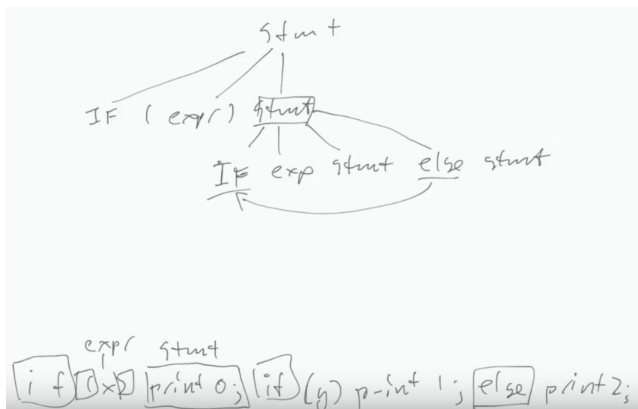 stmt
IF ( expr ) stmt
IF exp stmt else stmt
expr stmt
if (x) print 0; if (y) print 1; else print 2;